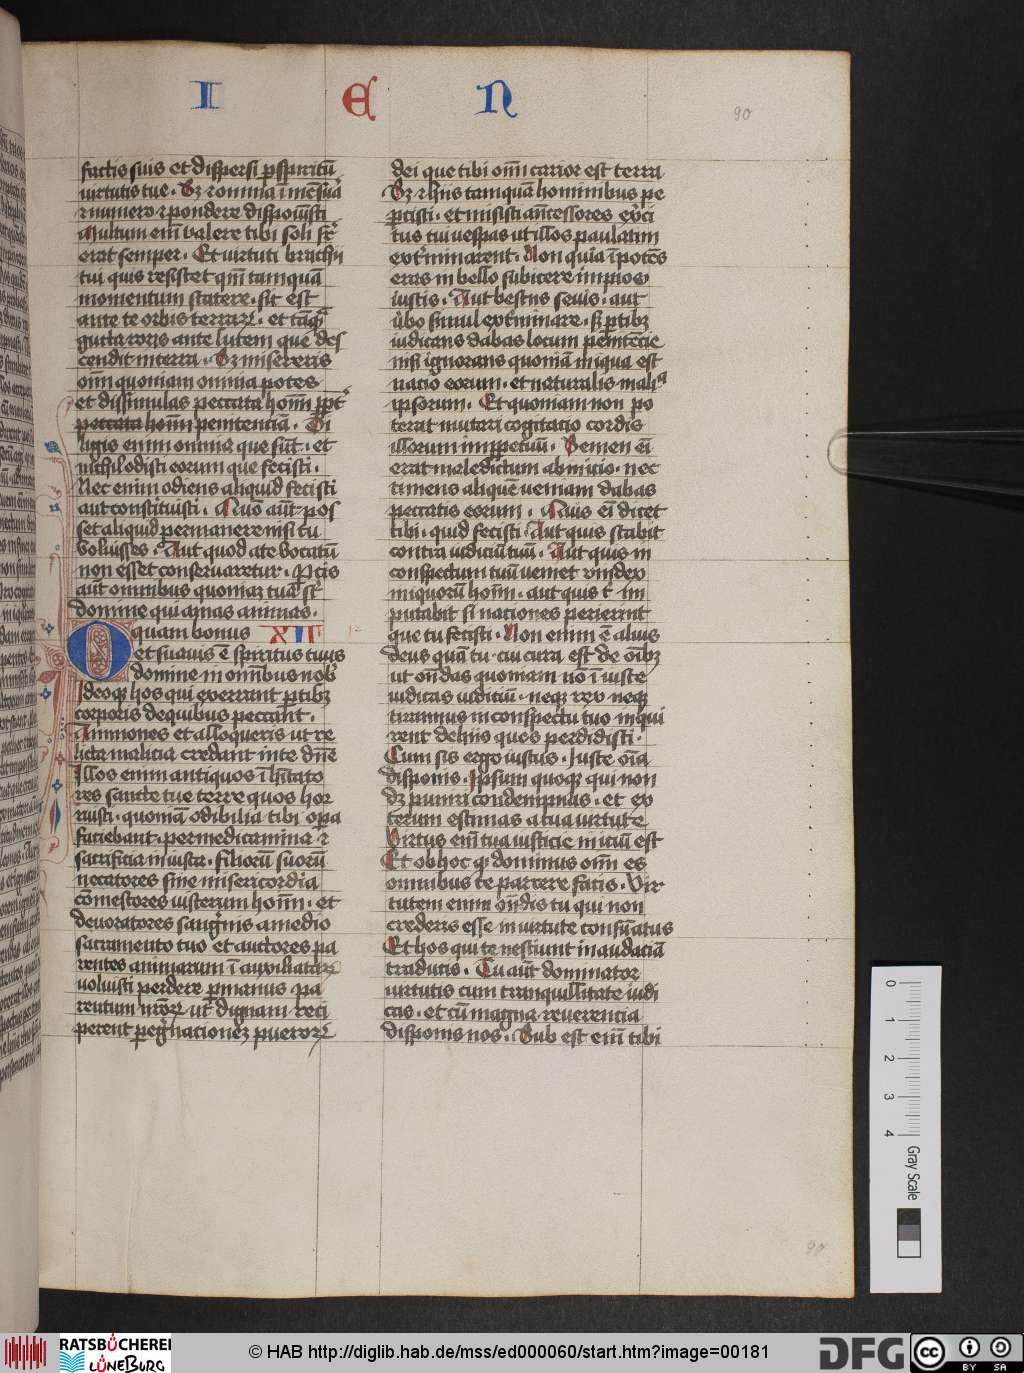 I E N
90
factis suis et dispersi p sp̄iritū
virtutis tue. Sz ⁊ omnia ī mēsura
⁊ numero ⁊ pondere disposuisti
Multum em̄ valere tibi soli sr̄
erat semper. Et virtuti brachii
tui quis resistet qm̄ tamquā
momentum statere. sic est
ante te orbis terrarꝝ. et tāqᷓ
gutta roris ante lucem que des
cendit in terra. Sz misereris
om̄ quoniam omnia potes
et dissimulas peccata hoīm ꝓpt᷑
peccata hoīm penitenciā. Di
ligis enim omnia que sūt. et
nichil odisti eorum que fecisti.
Nec enim odiens aliquid fecisti
aut constituisti. Quō aūt pos
set aliquid permanere nisi tu
voluisses. Aut quod a te vocatū
non esset conservaretur. Pcis
aūt omnibus quoniaz tua sr̄
domine qui amas animas.
O quam bonus XII
et suavis ē spiritus tuus
domine in omībus nob᷑
Ideoqꝫ hos qui exerrant ꝑtibꝫ
corporis de quibus peccant.
Ammones et alloqueris ut re
licta malicia credant in te dn̄e
Illos enim antiquos ī hītato
res sancte tue terre quos hor
ruisti. quoniā odibilia tibi oꝑa
faciebant. per medicamina ⁊
sacrificia iniusta. filiorū suorū
necatores sine misericordia
cōmestores viscerum hoīm. et
devoratores sangīnis a medio
sacramento tuo et auctores pa
rentes animarum ī auxiliatarꝝ
voluisti perdere ꝑ manus pa
rentum nr̄orꝝ ut dignam reci
perent peg̃nacionez puerorꝝ
dei que tibi om̄ carior est terra
Sz ⁊ hiis tamquā hominibus pe
ꝑcisti. et misisti an̄cessores exͬci
tus tui vespas ut illos paulatim
ext᷑minarent. Non quia īpotēs
eras in bello subicere impios
iustis. Aut bestiis sevis. aut
v̇bo simul ext᷑minare. sꝫ ꝑtibꝫ
iudicans dabas locum penitēcie
nisi ignorans quoniā iniqua est
nacio eorum. et naturalis maliᷓ
ipsorum. Et quoniam non po
terat mutari cogitacio cordis
illorum in ꝑpetuū. Semen em̄
erat maledictum ab inicio. nec
timens aliquē veniam dabas
peccatis eorum. Quis em̄ dicet
tibi. quid fecisti. Aut quis stabit
contra iudiciū tuū. Aut quis in
conspectum tuū veniet vindex
iniquorū hoīm. aut quis t᷑ im
putabit si naciones perierint
que tu fecisti. Non enim ē alius
deus quā tu. cui cura est de oībꝫ
ut on̄das quoniam nō ī iuste
iudicas iudiciū. neqꝫ rex neqꝫ
tirannus in conspectu tuo inqui
rent de hiis quos perdidisti.
Cum sis ergo iustus. Juste oīa
disponis. Ipsum quoqꝫ qui non
dꝫ puniri condempnas. et ex
terum estimas a tua virtute
Virtus em̄ tua iusticie iniciū est
Et ob hoc qꝫ dominus om̄ es
omnibus te parcere facis. Vir
tutem enim on̄dis tu qui non
crederis esse in virtute consūatus
Et hos qui te nesciunt in audaciā
traducis. Tu aūt dominator
virtutis cum tranquillitate iudi
cas. et cū magna reverencia
disponis nos. Sub est em̄ tibi
90
0 1 2 3 4 Gray Scale
RATSBÜCHEREI LÜNEBURG
© HAB http://diglib.hab.de/mss/ed000060/start.htm?image=00181
DFG
cc BY SA